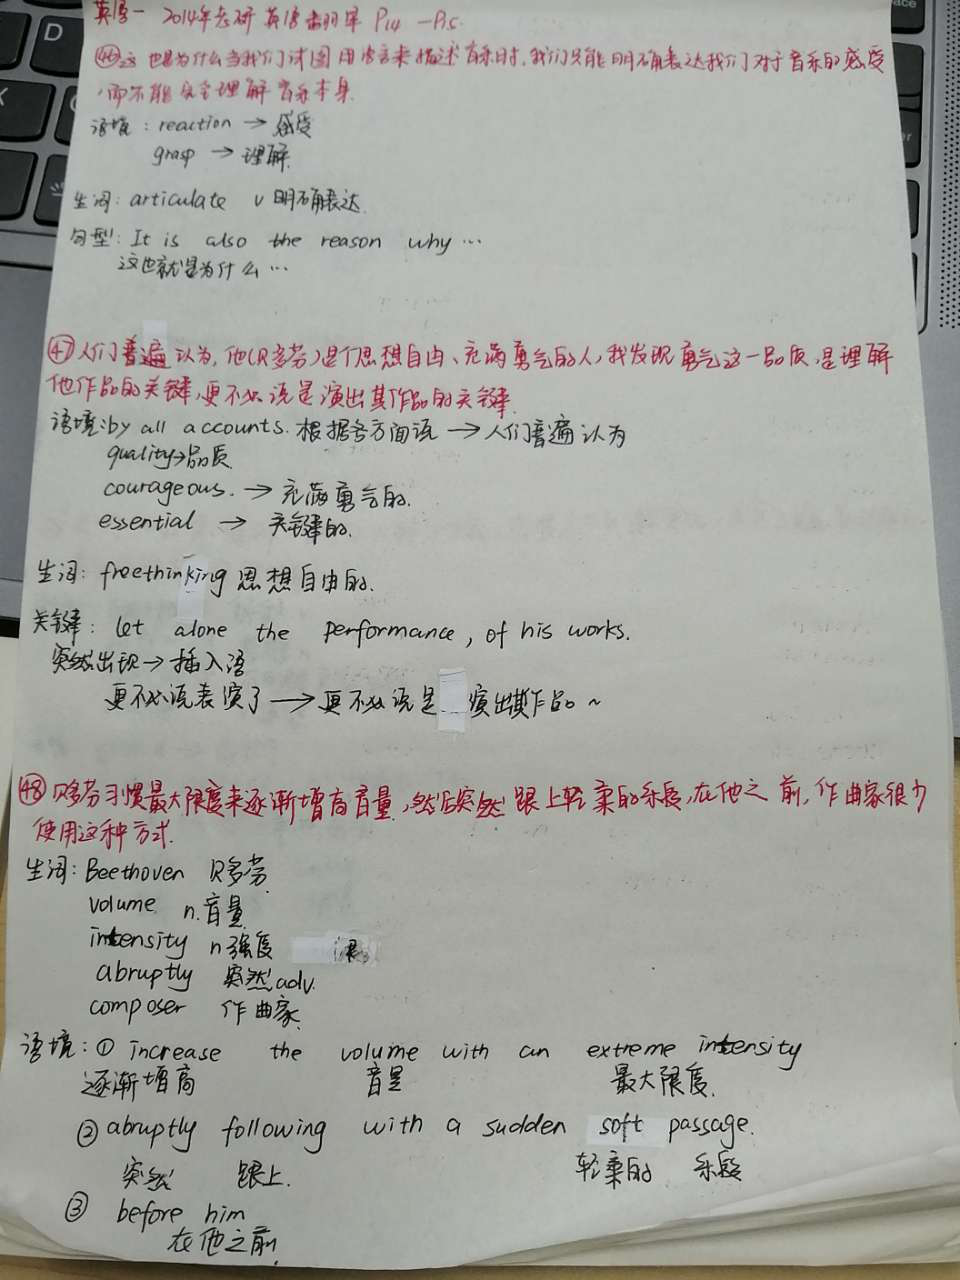 英语一 2014年考研 英语翻译 P14-P15
㊻这也是为什么当我们试图用语言来描述音乐时,我们只能明确表达我们对于音乐的感受
,而不能完全理解音乐本身.
语境: reaction → 感受
grasp → 理解.
生词: articulate v 明确表达.
句型: It is also the reason why …
这也就是为什么 …
㊼人们普遍认为,他(贝多芬)是个思想自由、充满勇气的人,我发现勇气这一品质,是理解
他作品的关键,更不必说是演出其作品的关键.
语境: by all accounts. 根据各方面说 → 人们普遍认为
quality→品质
courageous. → 充满勇气的.
essential → 关键的.
生词: freethinking 思想自由的.
关键: let alone the performance, of his works.
突然出现→插入语
更不必说表演了 → 更不必说是演出其作品~
㊽贝多芬习惯最大限度来逐渐增高音量,然后突然跟上轻柔的乐段,在他之前,作曲家很少
使用这种方式.
生词: Beethoven 贝多芬
volume n.音量
intensity n强度
abruptly 突然adv.
composer 作曲家
语境: ① increase the volume with an extreme intensity
逐渐增高 音量 最大限度.
② abruptly following with a sudden soft passage.
突然 跟上. 轻柔的 乐段
③ before him
在他之前